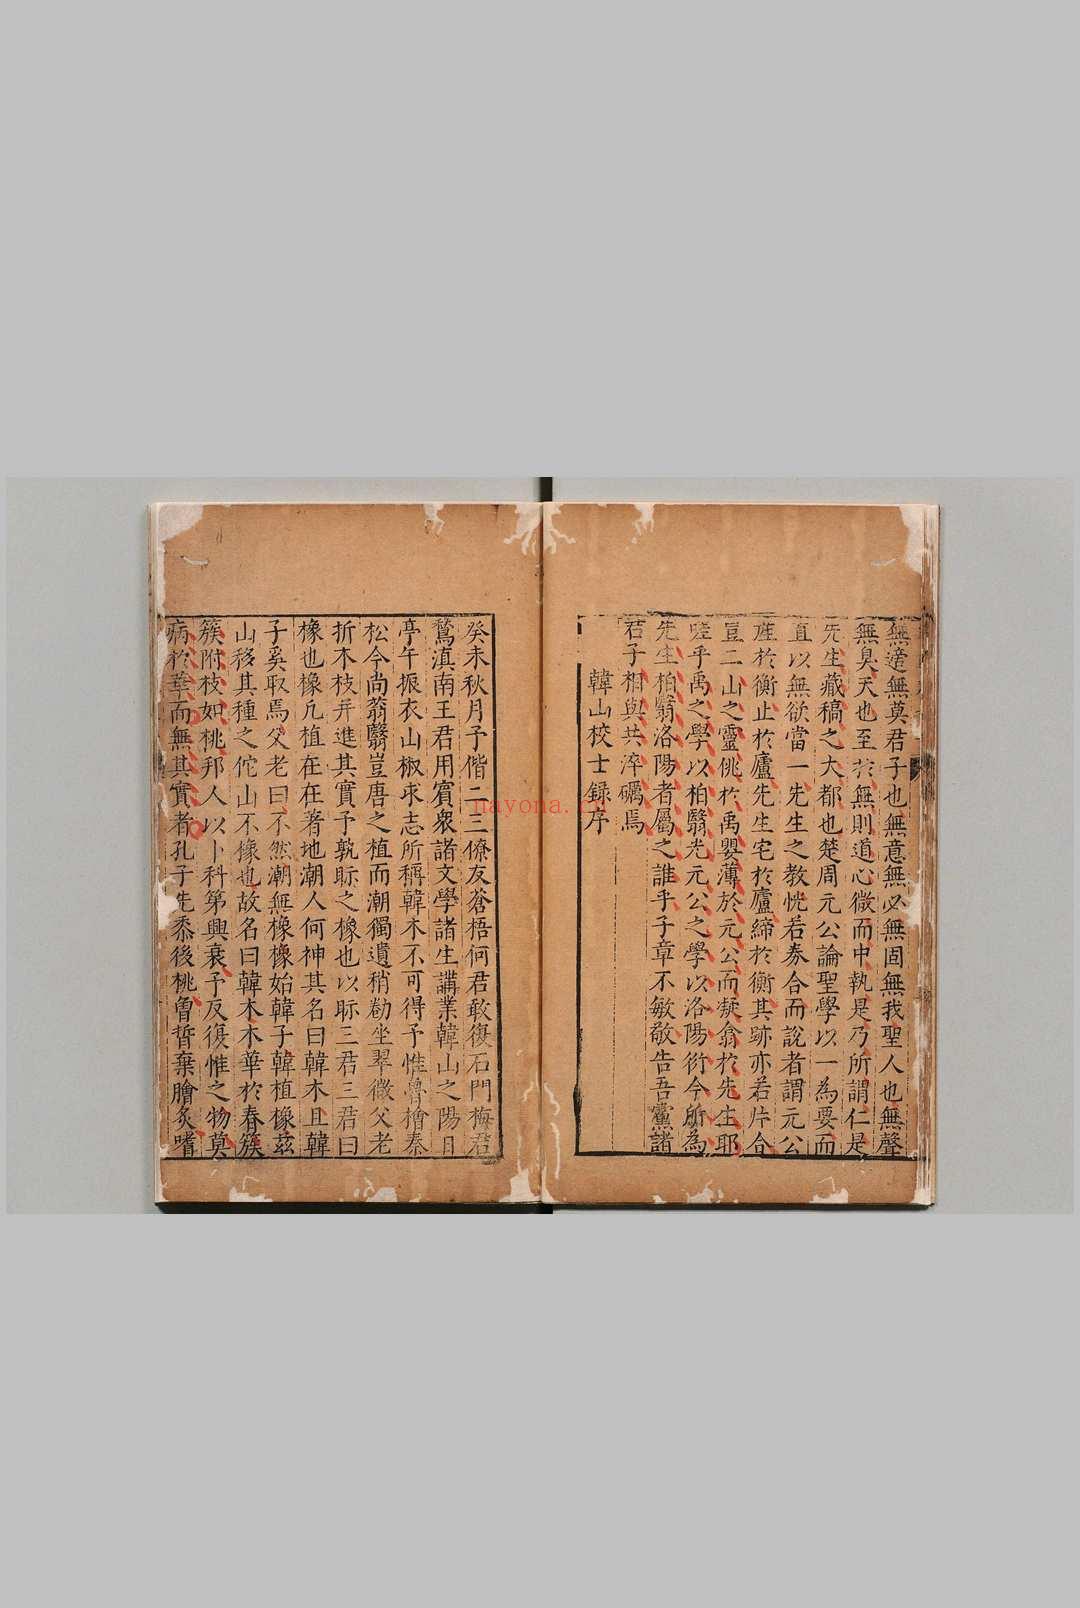 無適無莫君子也無意無必無固無我聖人也無聲
無臭天也至於無則道心微而中執是乃所謂仁是
先生藏稿之大都也楚周元公論聖學以一為要而
直以無欲當一先生之教恍若券合而說者謂元公
產於衡止於廬先生宅於廬締於衡其跡亦若片合
豈二山之靈佻於禹嬰薄於元公而凝翕於先生耶
嗟乎禹之學以柏翳光元公之學以洛陽衍今所為
先生柏翳洛陽者屬之誰乎子章不敏敬告吾黨諸
君子相與共淬礪焉
韓山校士録序
癸未秋月予偕二三僚友蒼梧何君敢復石門梅君
鶩滇南王君用賓衆諸文學諸生講業韓山之陽日
亭午振衣山椒求志所稱韓木不可得予惟魯檜秦
松今尚蓊翳豈唐之植而潮獨遺稍勌坐翠微父老
折木枝并進其實予孰眎之橡也以眎三君三君曰
橡也橡凢植在在著地潮人何神其名曰韓木且韓
子奚取焉父老曰不然潮無橡橡始韓子韓植橡茲
山移其種之佗山不橡也故名曰韓木木華於春簇
簇附枝如桃邦人以卜科第興衰予反復惟之物莫
病於華而無其實者孔子先黍後桃魯晳棄膾炙嗜
nayona.cn